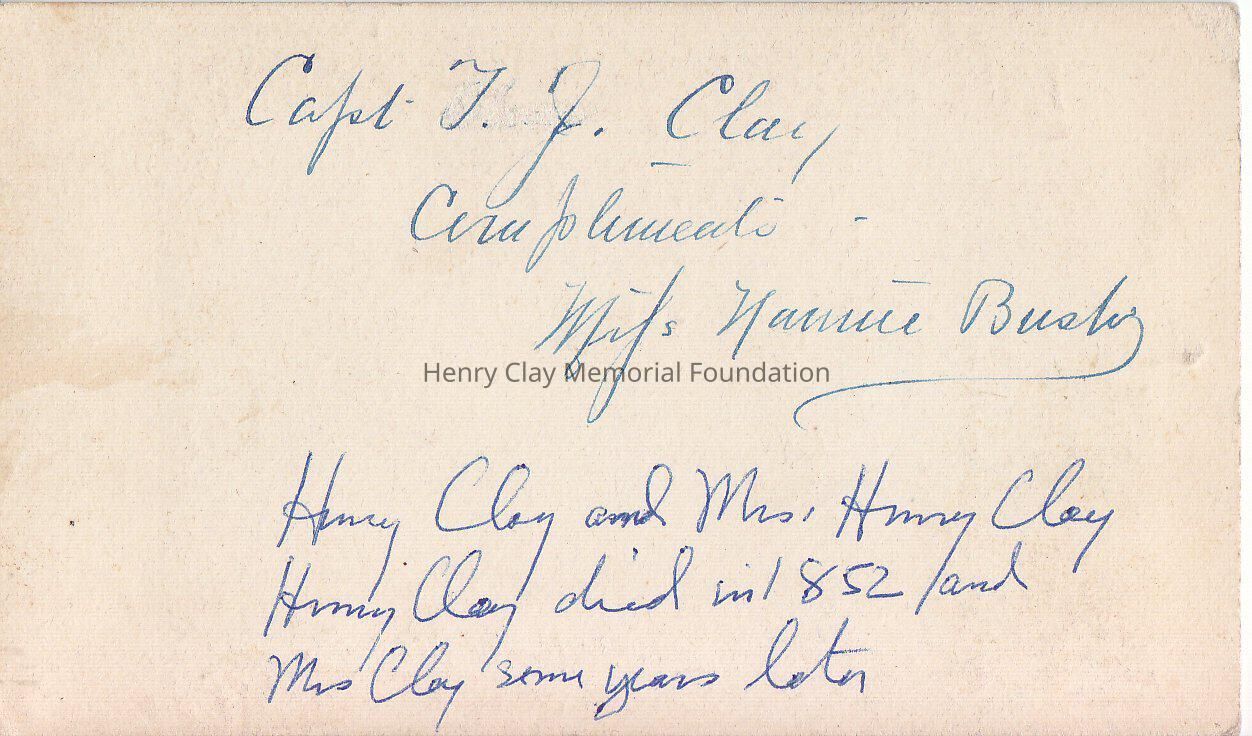 Capt T. J. Clay
Compliments -
Miss Nannie Busby
Henry Clay Memorial Foundation
Henry Clay and Mrs. Henry Clay
Henry Clay died in 1852 and
Mrs Clay some years later